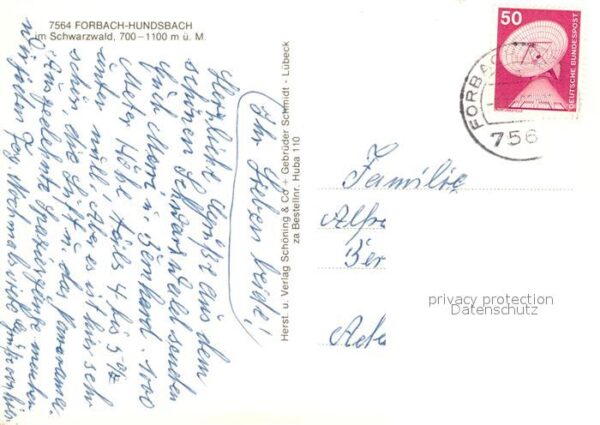 7564 FORBACH-HUNDSBACH
im Schwarzwald, 700-1100 m ü. M.
Ihr Lieben beide!
Herzliche Grüße aus dem
schönen Schwarzwald senden
Euch Maria u. Bernhard. 1000
Meter Höhe teils 4 bis 5°
unter null, Aber es ist hier sehr
schön, die Luft u. das Panorama.
Ausgedehnte Spaziergänge machen
wir jeden Tag. Nochmals viele Grüße
Herst. u. Verlag Schöning & Co + Gebrüder Schmidt - Lübeck
zu Bestellnr. Huba 110
50
DEUTSCHE BUNDESPOST
FORBAC
756
Familie
Alfre
Ber
privacy protection
Datenschutz